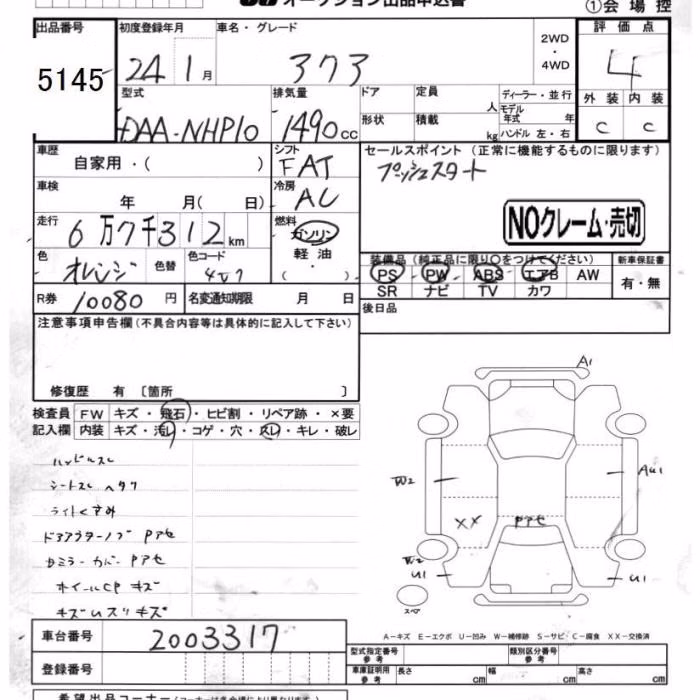 オークション出品申込書
①会場控
出品番号 初度登録年月 車名・グレード 2WD・4WD 評価点
5145 24 1月 373 4
型式 排気量 ドア 定員 人 ディーラー・並行 外装 内装
DAA-NHP10 1490cc 形状 積載 kg モデル年式 年 C C
ハンドル 左・右
車歴 自家用・( ) シフト FAT セールスポイント (正常に機能するものに限ります)
プッシュスタート
車検 年 月( 日) 冷房 AC
走行 6万7千312km 燃料 ガソリン NOクレーム・売切
軽油・( )
色 オレンジ 色替 色コード 4R7 装備品(純正品に限り○をつけてください) 新車保証書
PS PW ABS エアB AW 有・無
SR ナビ TV カワ
R券 10080円 名変通知期限 月 日 後日品
注意事項申告欄(不具合内容等は具体的に記入して下さい)
修復歴 有 〔箇所 〕
検査員 FW キズ・飛石・ヒビ割・リペア跡・×要
記入欄 内装 キズ・汚レ・コゲ・穴・スレ・キレ・破レ
ハンドルスレ
シートスレ ヘタリ
ライトくすみ
ドアアウターノブ Pアセ
Sミラーカバー Pアセ
ホイールCP キズ
キズ
A1
W2
AU1
XX
Pアセ
W2
U1
U1
スペア
A-キズ E-エクボ U-凹み W-補修跡 S-サビ・C-腐食 XX-交換済
車台番号 2003317
型式指定番号 参考 類別区分番号 参考
登録番号
車庫証明用 参考 長さ cm 幅 cm 高さ cm
希望出品コーナー